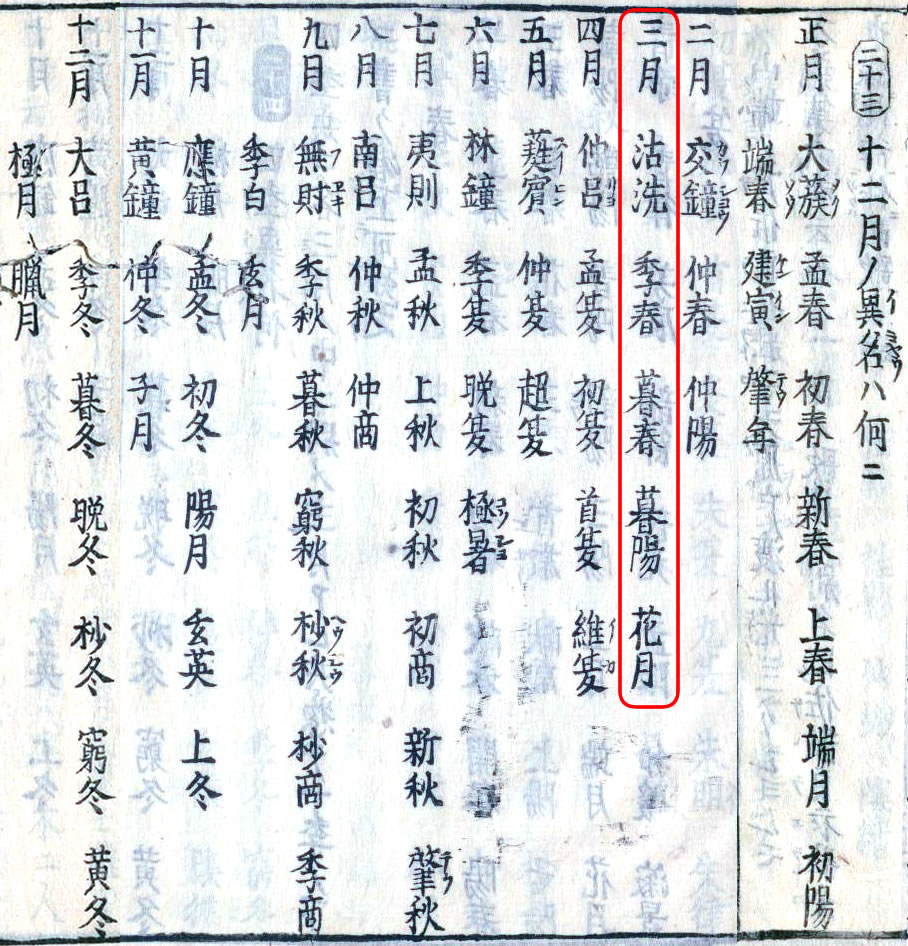 二十三 十二月ノ異名ハ何ニ
イミヤウ
正月 大蔟 孟春 初春 新春 上春 端月 初陽
端春 建寅 肇年
二月 交鐘 仲春 仲陽
三月 沽洗 季春 暮春 暮陽 花月
四月 仲呂 孟夏 初夏 首夏 維夏
五月 蕤賓 仲夏 超夏
六月 林鐘 季夏 晩夏 極暑
七月 夷則 孟秋 上秋 初秋 初商 新秋 肇秋
八月 南呂 仲秋 仲商
九月 無財 季秋 暮秋 窮秋 杪秋 杪商 季商
季白 玄月
十月 應鐘 孟冬 初冬 陽月 玄英 上冬
十一月 黄鐘 仲冬 子月
十二月 大呂 季冬 暮冬 晩冬 杪冬 窮冬 黄冬
極月 臘月